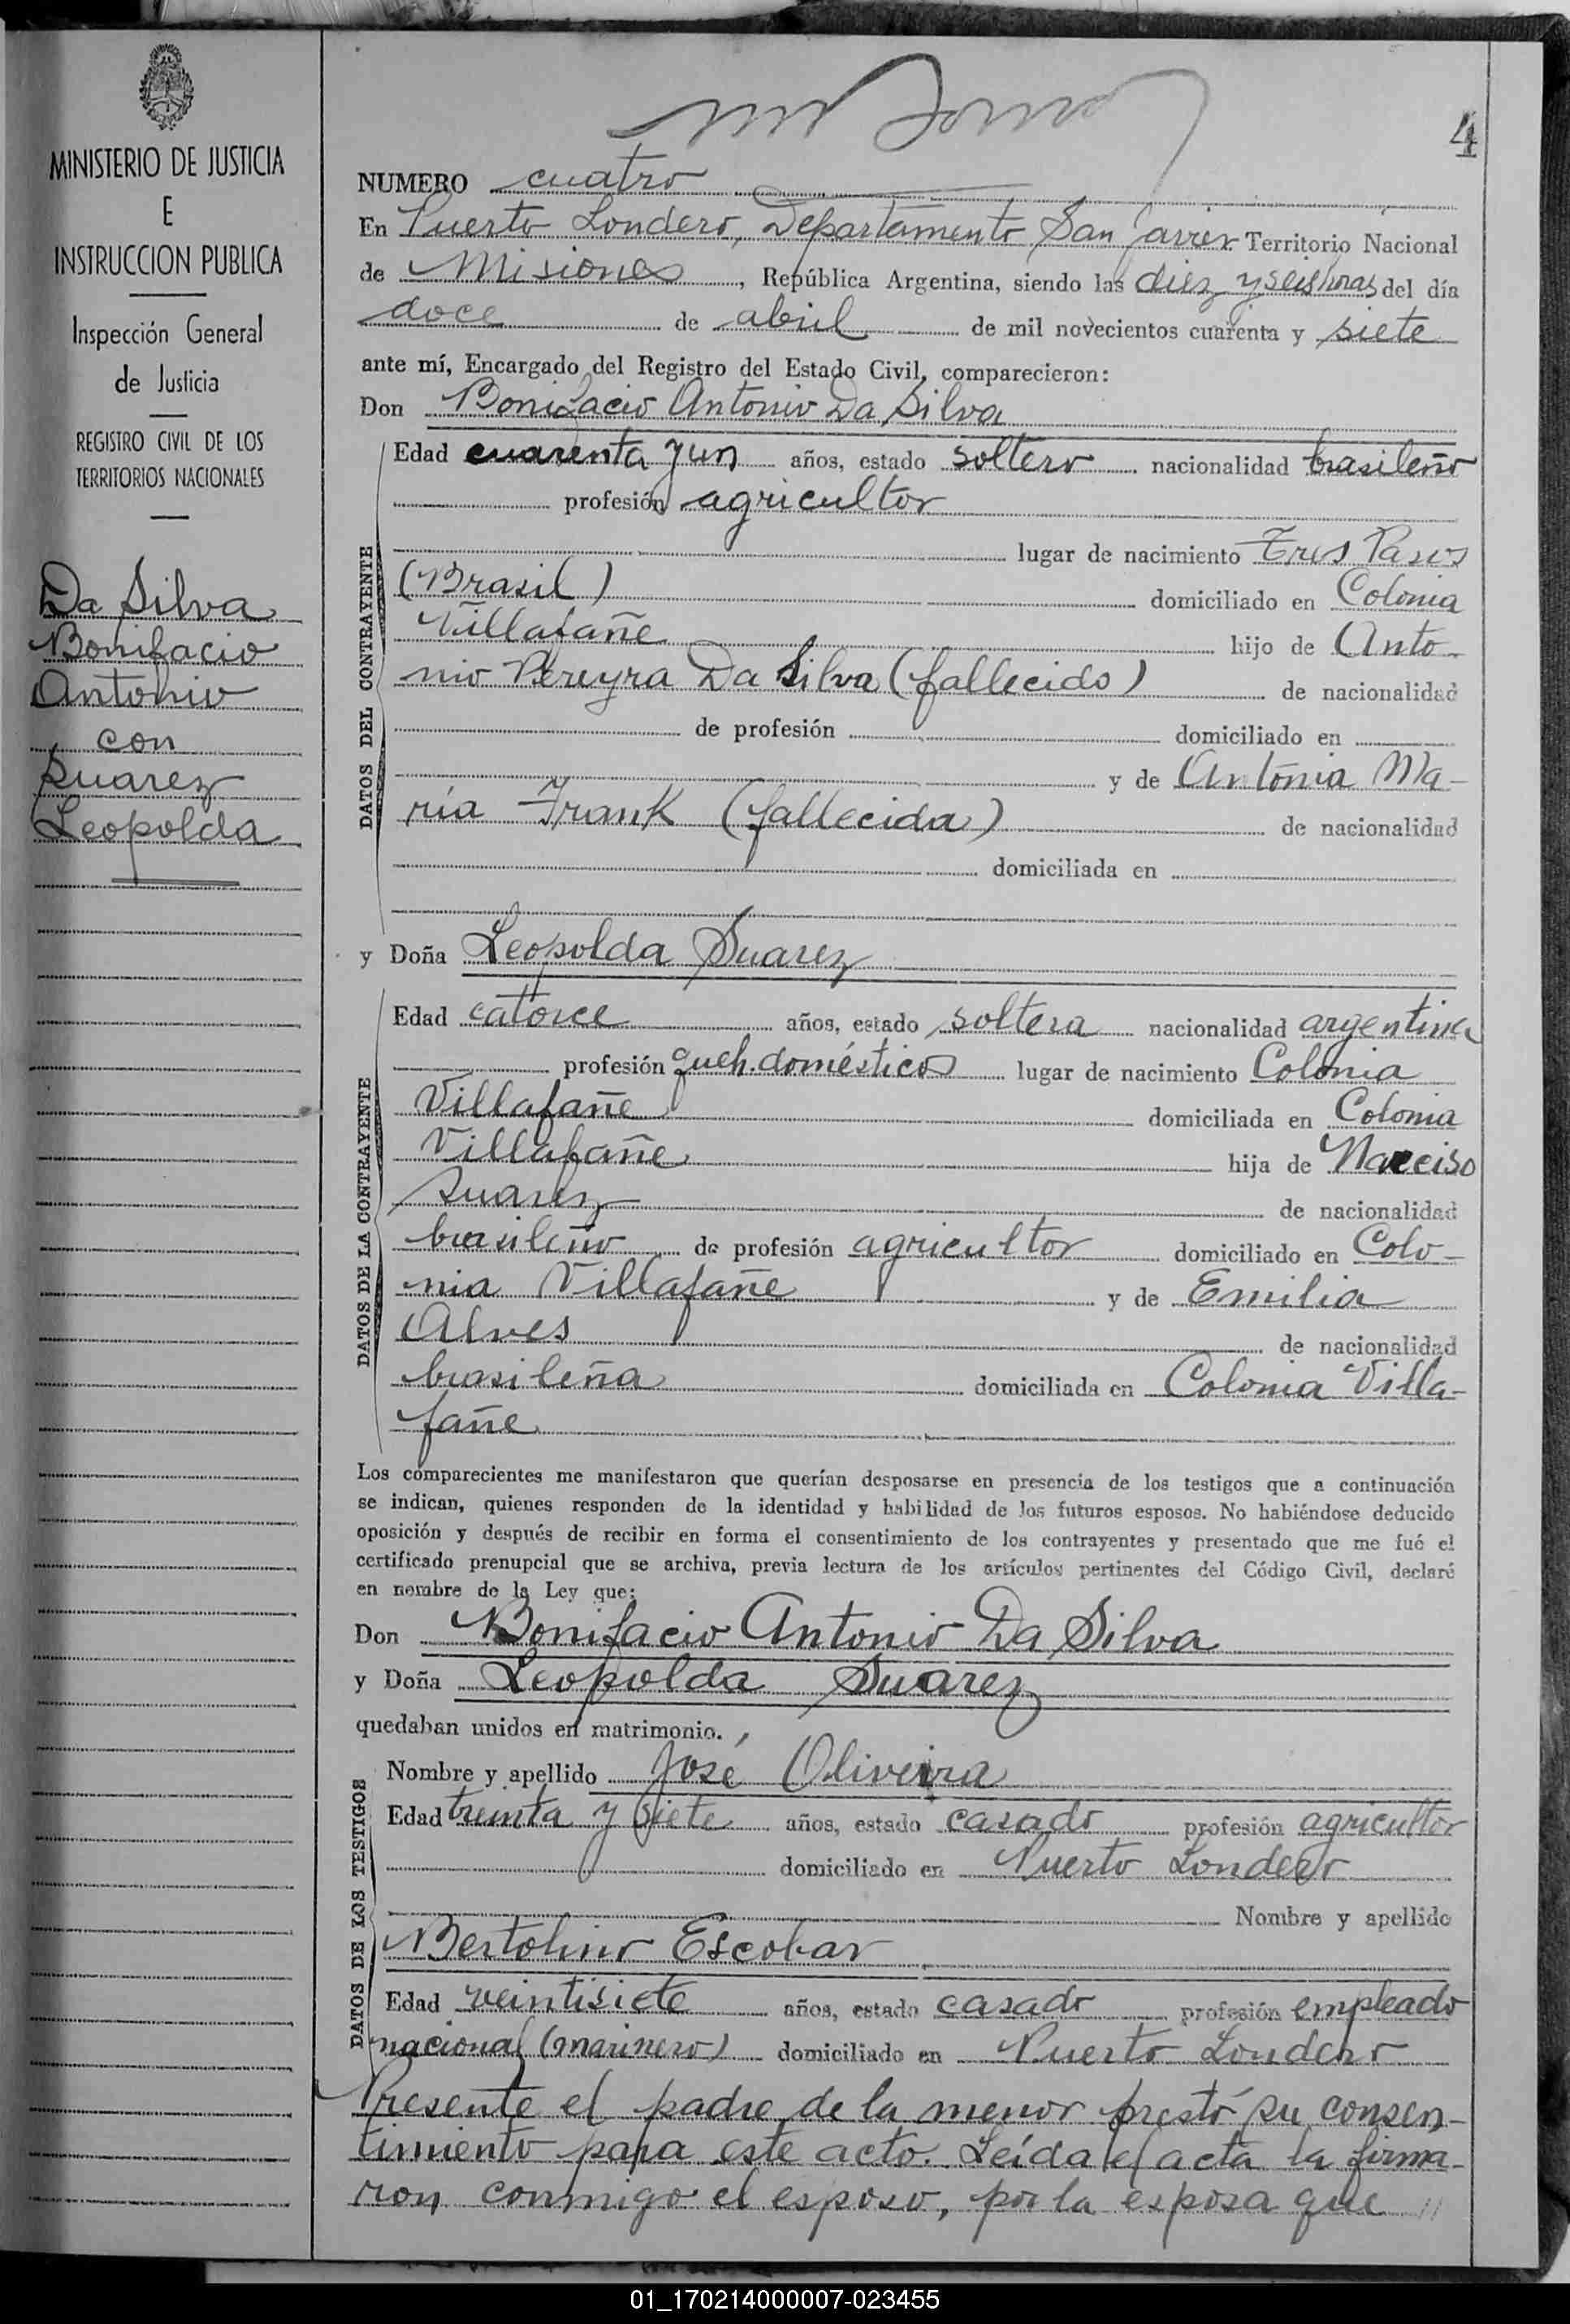 MINISTERIO DE JUSTICIA
E
INSTRUCCION PUBLICA
Inspección General
de Justicia
REGISTRO CIVIL DE LOS
TERRITORIOS NACIONALES
Da Silva
Bonifacio
Antonio
con
Suarez
Leopolda
4
NUMERO cuatro
En Puerto Londero, Departamento San Javier Territorio Nacional
de Misiones, República Argentina, siendo las diez y seis horas del día
doce de abril de mil novecientos cuarenta y siete
ante mí, Encargado del Registro del Estado Civil, comparecieron:
Don Bonifacio Antonio Da Silva
DATOS DEL CONTRAYENTE
Edad cuarenta y un años, estado soltero nacionalidad brasileño
profesión agricultor
lugar de nacimiento Tres Pasos
(Brasil) domiciliado en Colonia
Villafañe hijo de Anto-
nio Pereyra Da Silva (fallecido) de nacionalidad
de profesión domiciliado en
y de Antonia Ma-
ría Frank (fallecida) de nacionalidad
domiciliada en
y Doña Leopolda Suarez
DATOS DE LA CONTRAYENTE
Edad catorce años, estado soltera nacionalidad argentina
profesión queh. domésticos lugar de nacimiento Colonia
Villafañe domiciliada en Colonia
Villafañe hija de Narciso
Suarez de nacionalidad
brasileño de profesión agricultor domiciliado en Colo-
nia Villafañe y de Emilia
Alves de nacionalidad
brasileña domiciliada en Colonia Villa-
fañe
Los comparecientes me manifestaron que querían desposarse en presencia de los testigos que a continuación
se indican, quienes responden de la identidad y habilidad de los futuros esposos. No habiéndose deducido
oposición y después de recibir en forma el consentimiento de los contrayentes y presentado que me fué el
certificado prenupcial que se archiva, previa lectura de los artículos pertinentes del Código Civil, declaré
en nombre de la Ley que:
Don Bonifacio Antonio Da Silva
y Doña Leopolda Suarez
quedaban unidos en matrimonio.
DATOS DE LOS TESTIGOS
Nombre y apellido José Oliveira
Edad treinta y siete años, estado casado profesión agricultor
domiciliado en Puerto Londero
Nombre y apellido
Bertolino Escobar
Edad veintisiete años, estado casado profesión empleado
nacional (marinero) domiciliado en Puerto Londero
Presente el padre de la menor prestó su consen-
timiento para este acto. Leída el acta la firma-
ron conmigo el esposo, por la esposa que //
01_170214000007-023455